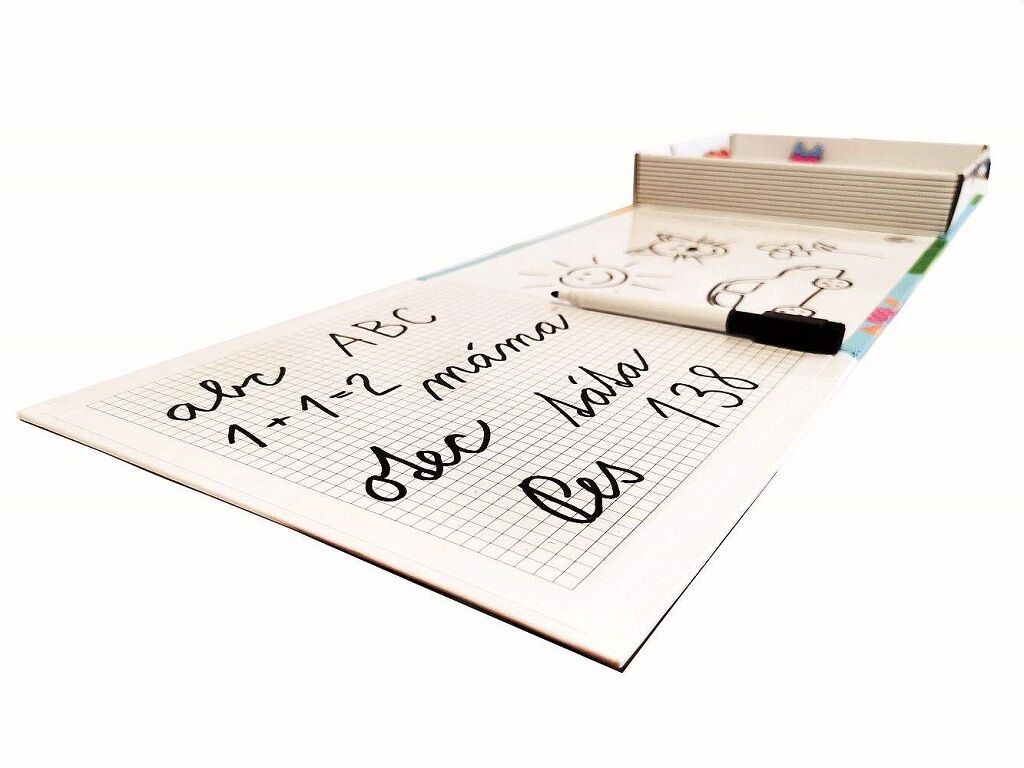 abc ABC
1+1=2 máma
otec táta
Pes 138